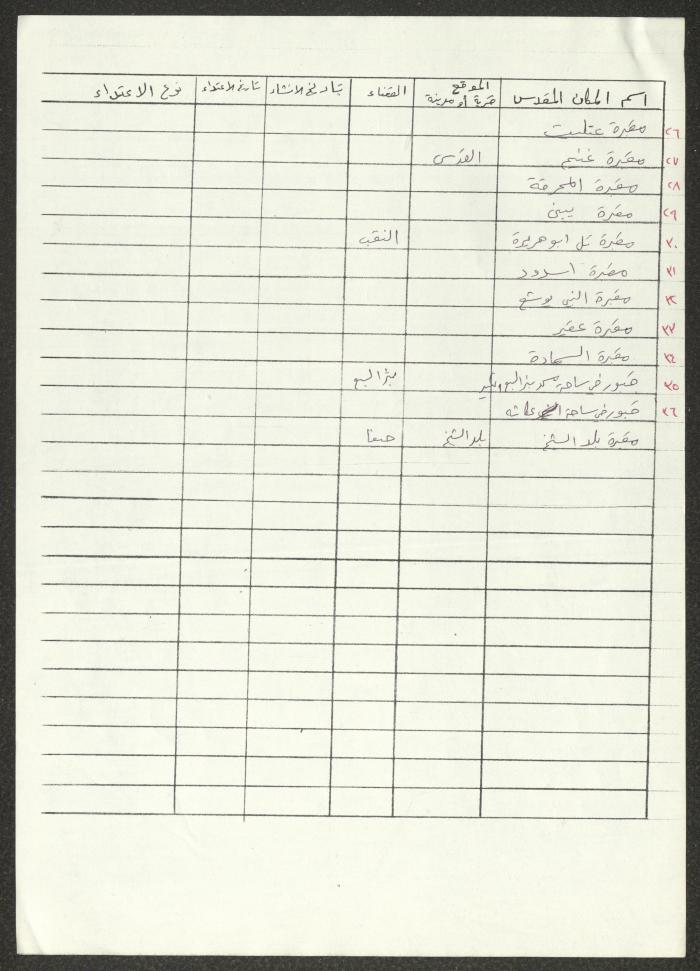 اسم المكان المقدس الموقع قرية أو مدينة القضاء تاريخ الانشاء تاريخ الاعتداء نوع الاعتداء
٢٦ مقبرة عتليت
٢٧ مقبرة غنيم القدس
٢٨ مقبرة المحرقة
٢٩ مقبرة يبنى
٣٠ مقبرة تل ابو هريرة النقب
٣١ مقبرة اسدود
٣٢ مقبرة النبي يوشع
٣٣ مقبرة عقير
٣٤ مقبرة السجادة
٣٥ قبور في ساحة مسجد بئر السبع الكبير بئر السبع
٣٦ قبور في ساحة
مقبرة بلد الشيخ بلد الشيخ حيفا